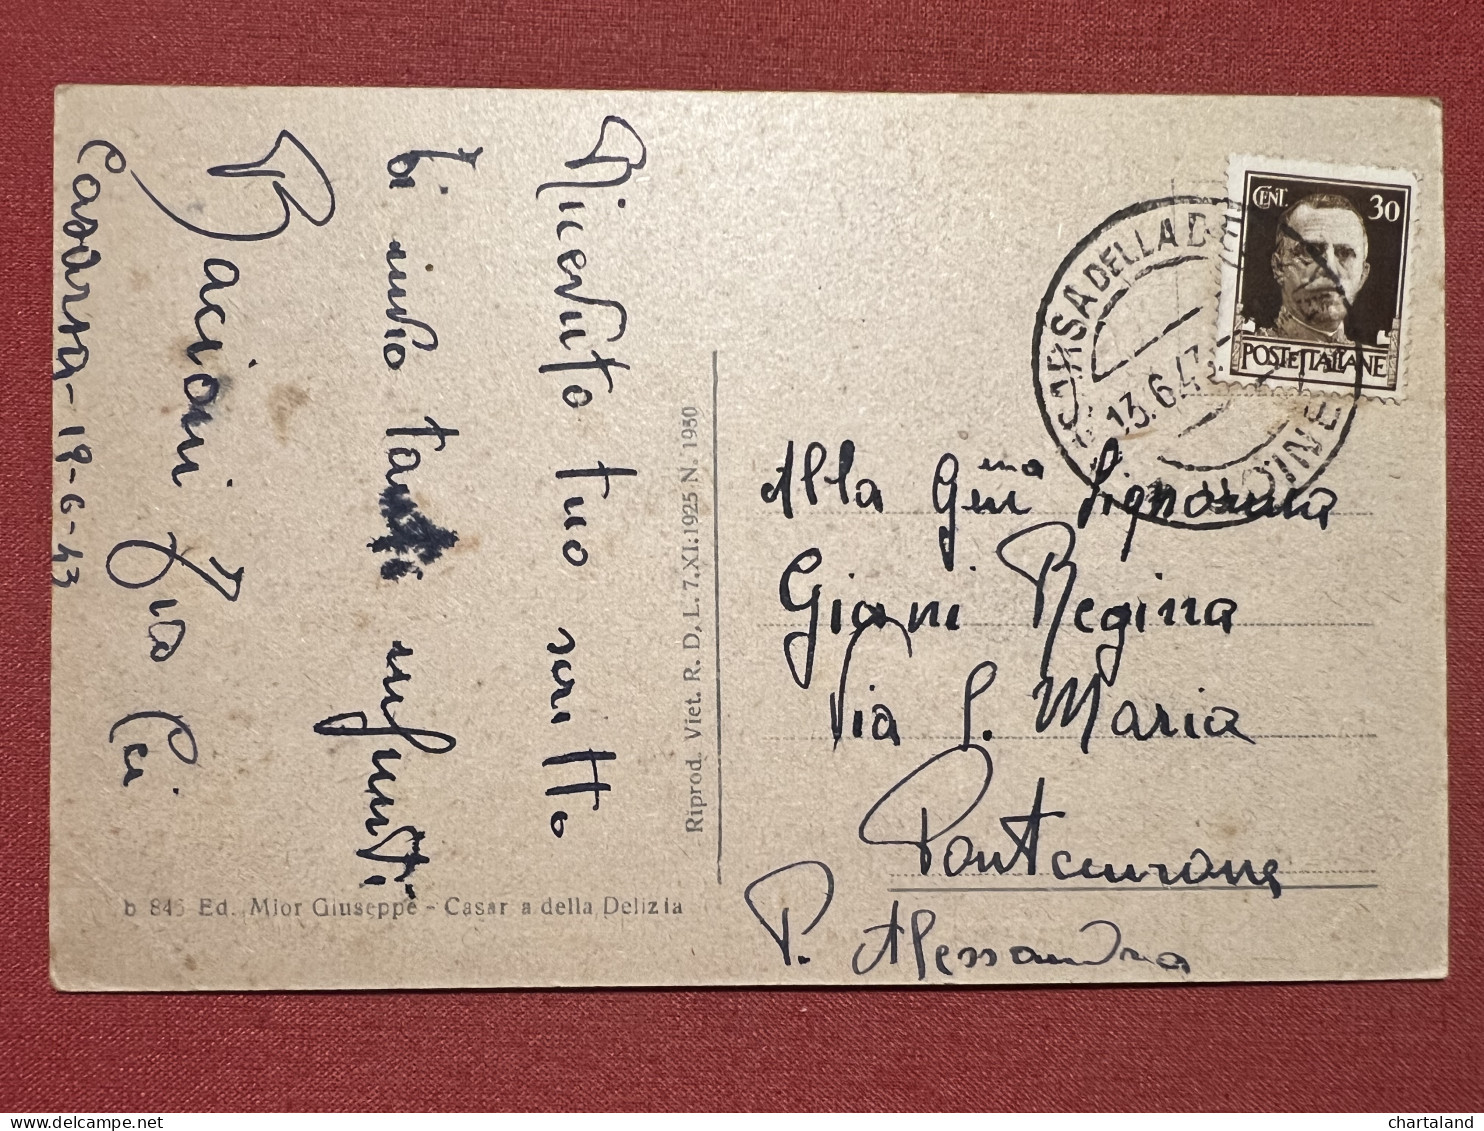 Ricevuto tuo scritto
ti invio tanti
Bacioni Zia
Casarsa - 18-6-43
b 845 Ed. Mior Giuseppe - Casar a della Delizia
Riprod. Viet. R. D. L. 7.XI.1925 N. 1930
CENT. 30
POSTE ITALIANE
CASARSA DELLA DEL
13.6.43
UDINE
Alla Gen.ma Signorina
Giani Regina
Via S. Maria
Pontecurone
P. Alessandria
delcampe.net
chartaland